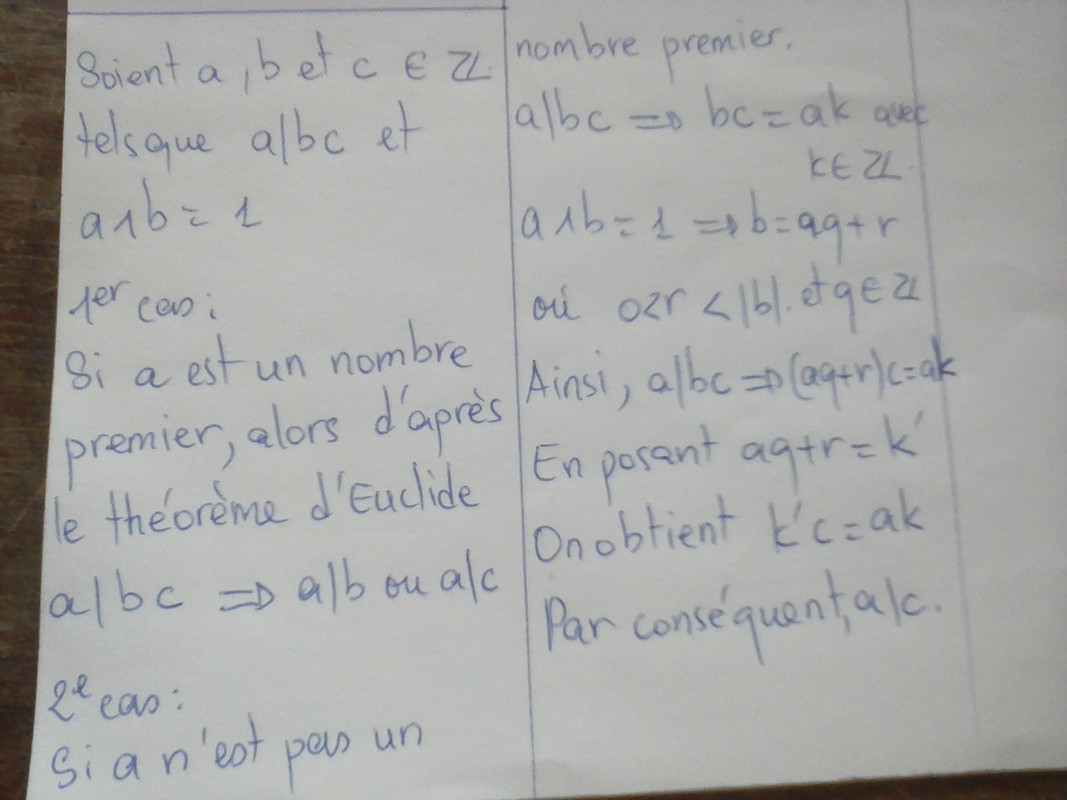 Soient a, b et c ∈ ℤ
tels que a/bc et
a∧b = 1
1er cas:
Si a est un nombre
premier, alors d'après
le théorème d'Euclide
a/bc ⇒ a/b ou a/c
2e cas:
Si a n'est pas un
nombre premier.
a/bc ⇒ bc = ak avec
k ∈ ℤ.
a∧b = 1 ⇒ b = aq + r
où 0<r < |b|. et q ∈ ℤ
Ainsi, a/bc ⇒ (aq+r)c = ak
En posant aq+r = k'
On obtient k'c = ak
Par conséquent, a/c.